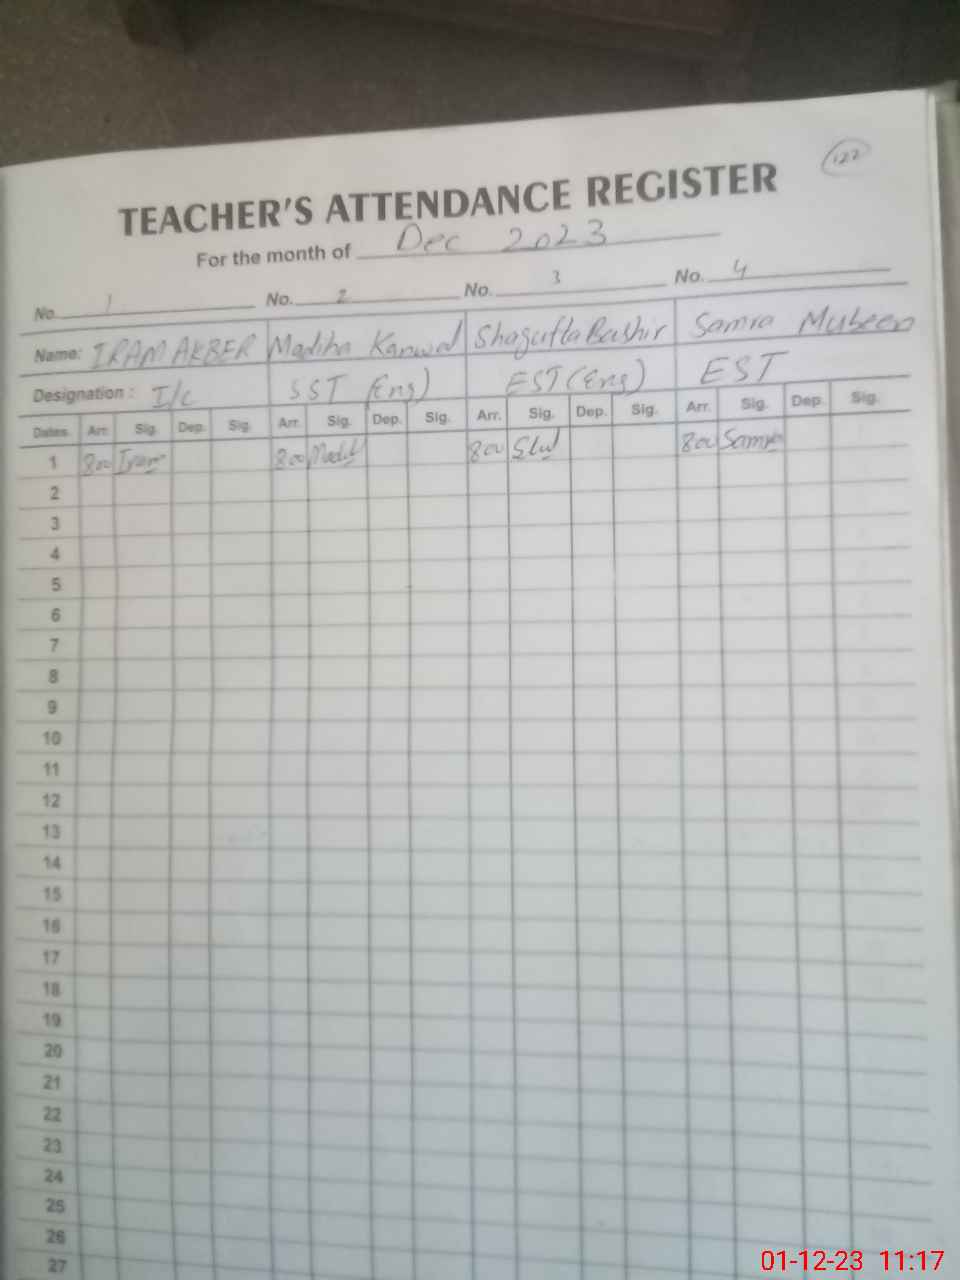 122
TEACHER'S ATTENDANCE REGISTER
For the month of Dec 2023
No. 1 No. 2 No. 3 No. 4
Name: IRAM AKBER Madiha Kanwal Shagufta Bashir Samra Mubeen
Designation : I/c SST (Eng) EST (Eng) EST
Dates Arr. Sig. Dep. Sig. Arr. Sig. Dep. Sig. Arr. Sig. Dep. Sig. Arr. Sig. Dep. Sig.
1 800 Iram 800 800 800 Samra
2
3
4
5
6
7
8
9
10
11
12
13
14
15
16
17
18
19
20
21
22
23
24
25
26
27
01-12-23 11:17